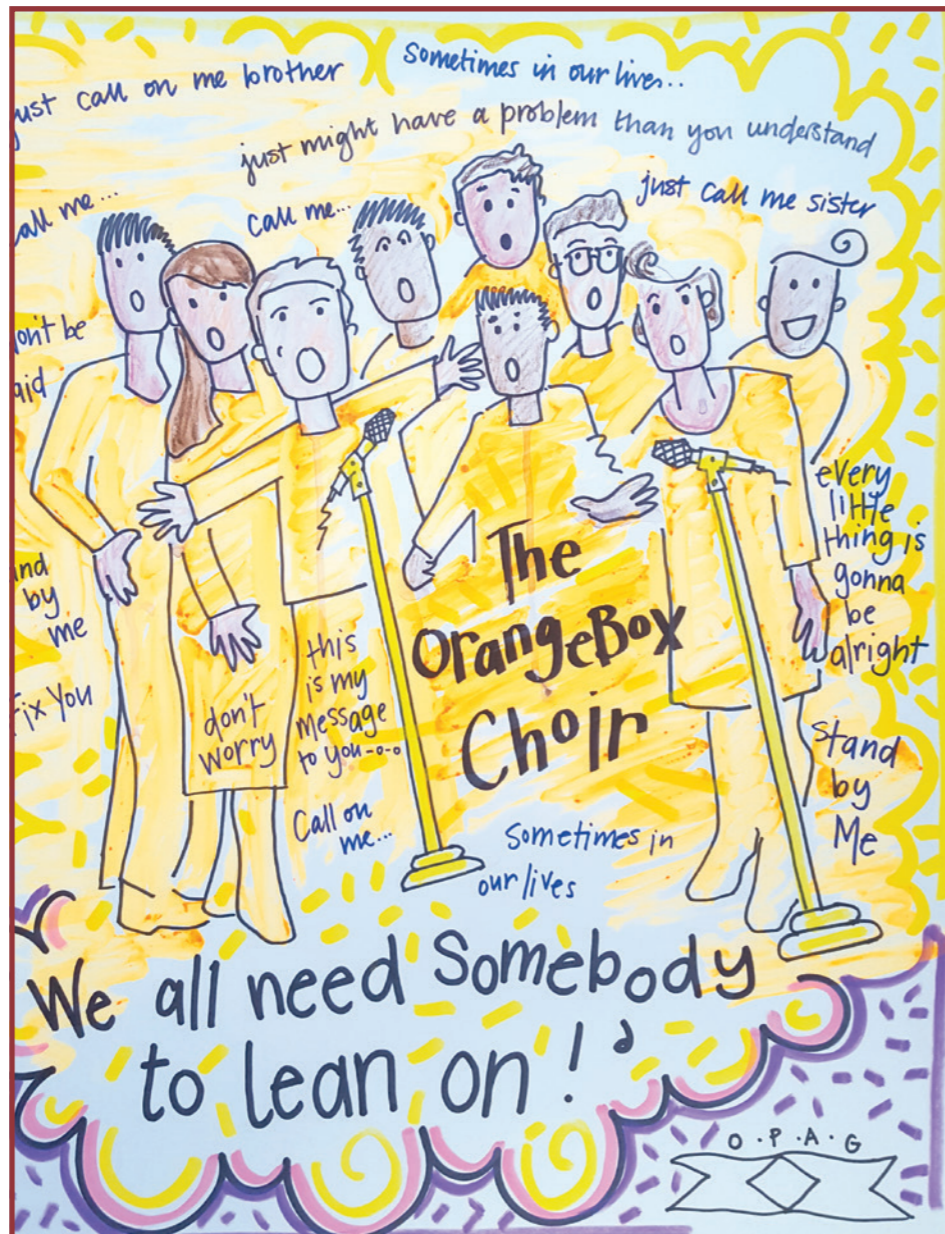 just call on me brother
Sometimes in our lives..
just might have a problem than you understand
call me...
call me...
just call me sister
on't be
aid
and
by
me
ix You
don't
worry
this
is my
message
to you-o-o
Call on
me...
The
OrangeBox
Choir
every
little
thing is
gonna
be
alright
Stand
by
Me
Sometimes in
our lives
We all need Somebody
to lean on!
O.P.A.G